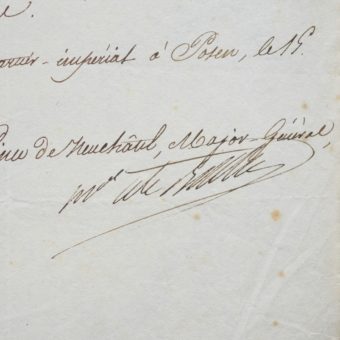 e.
artier-impérial à Posen, le 15.
ince de Neuchâtel, Major-Général,